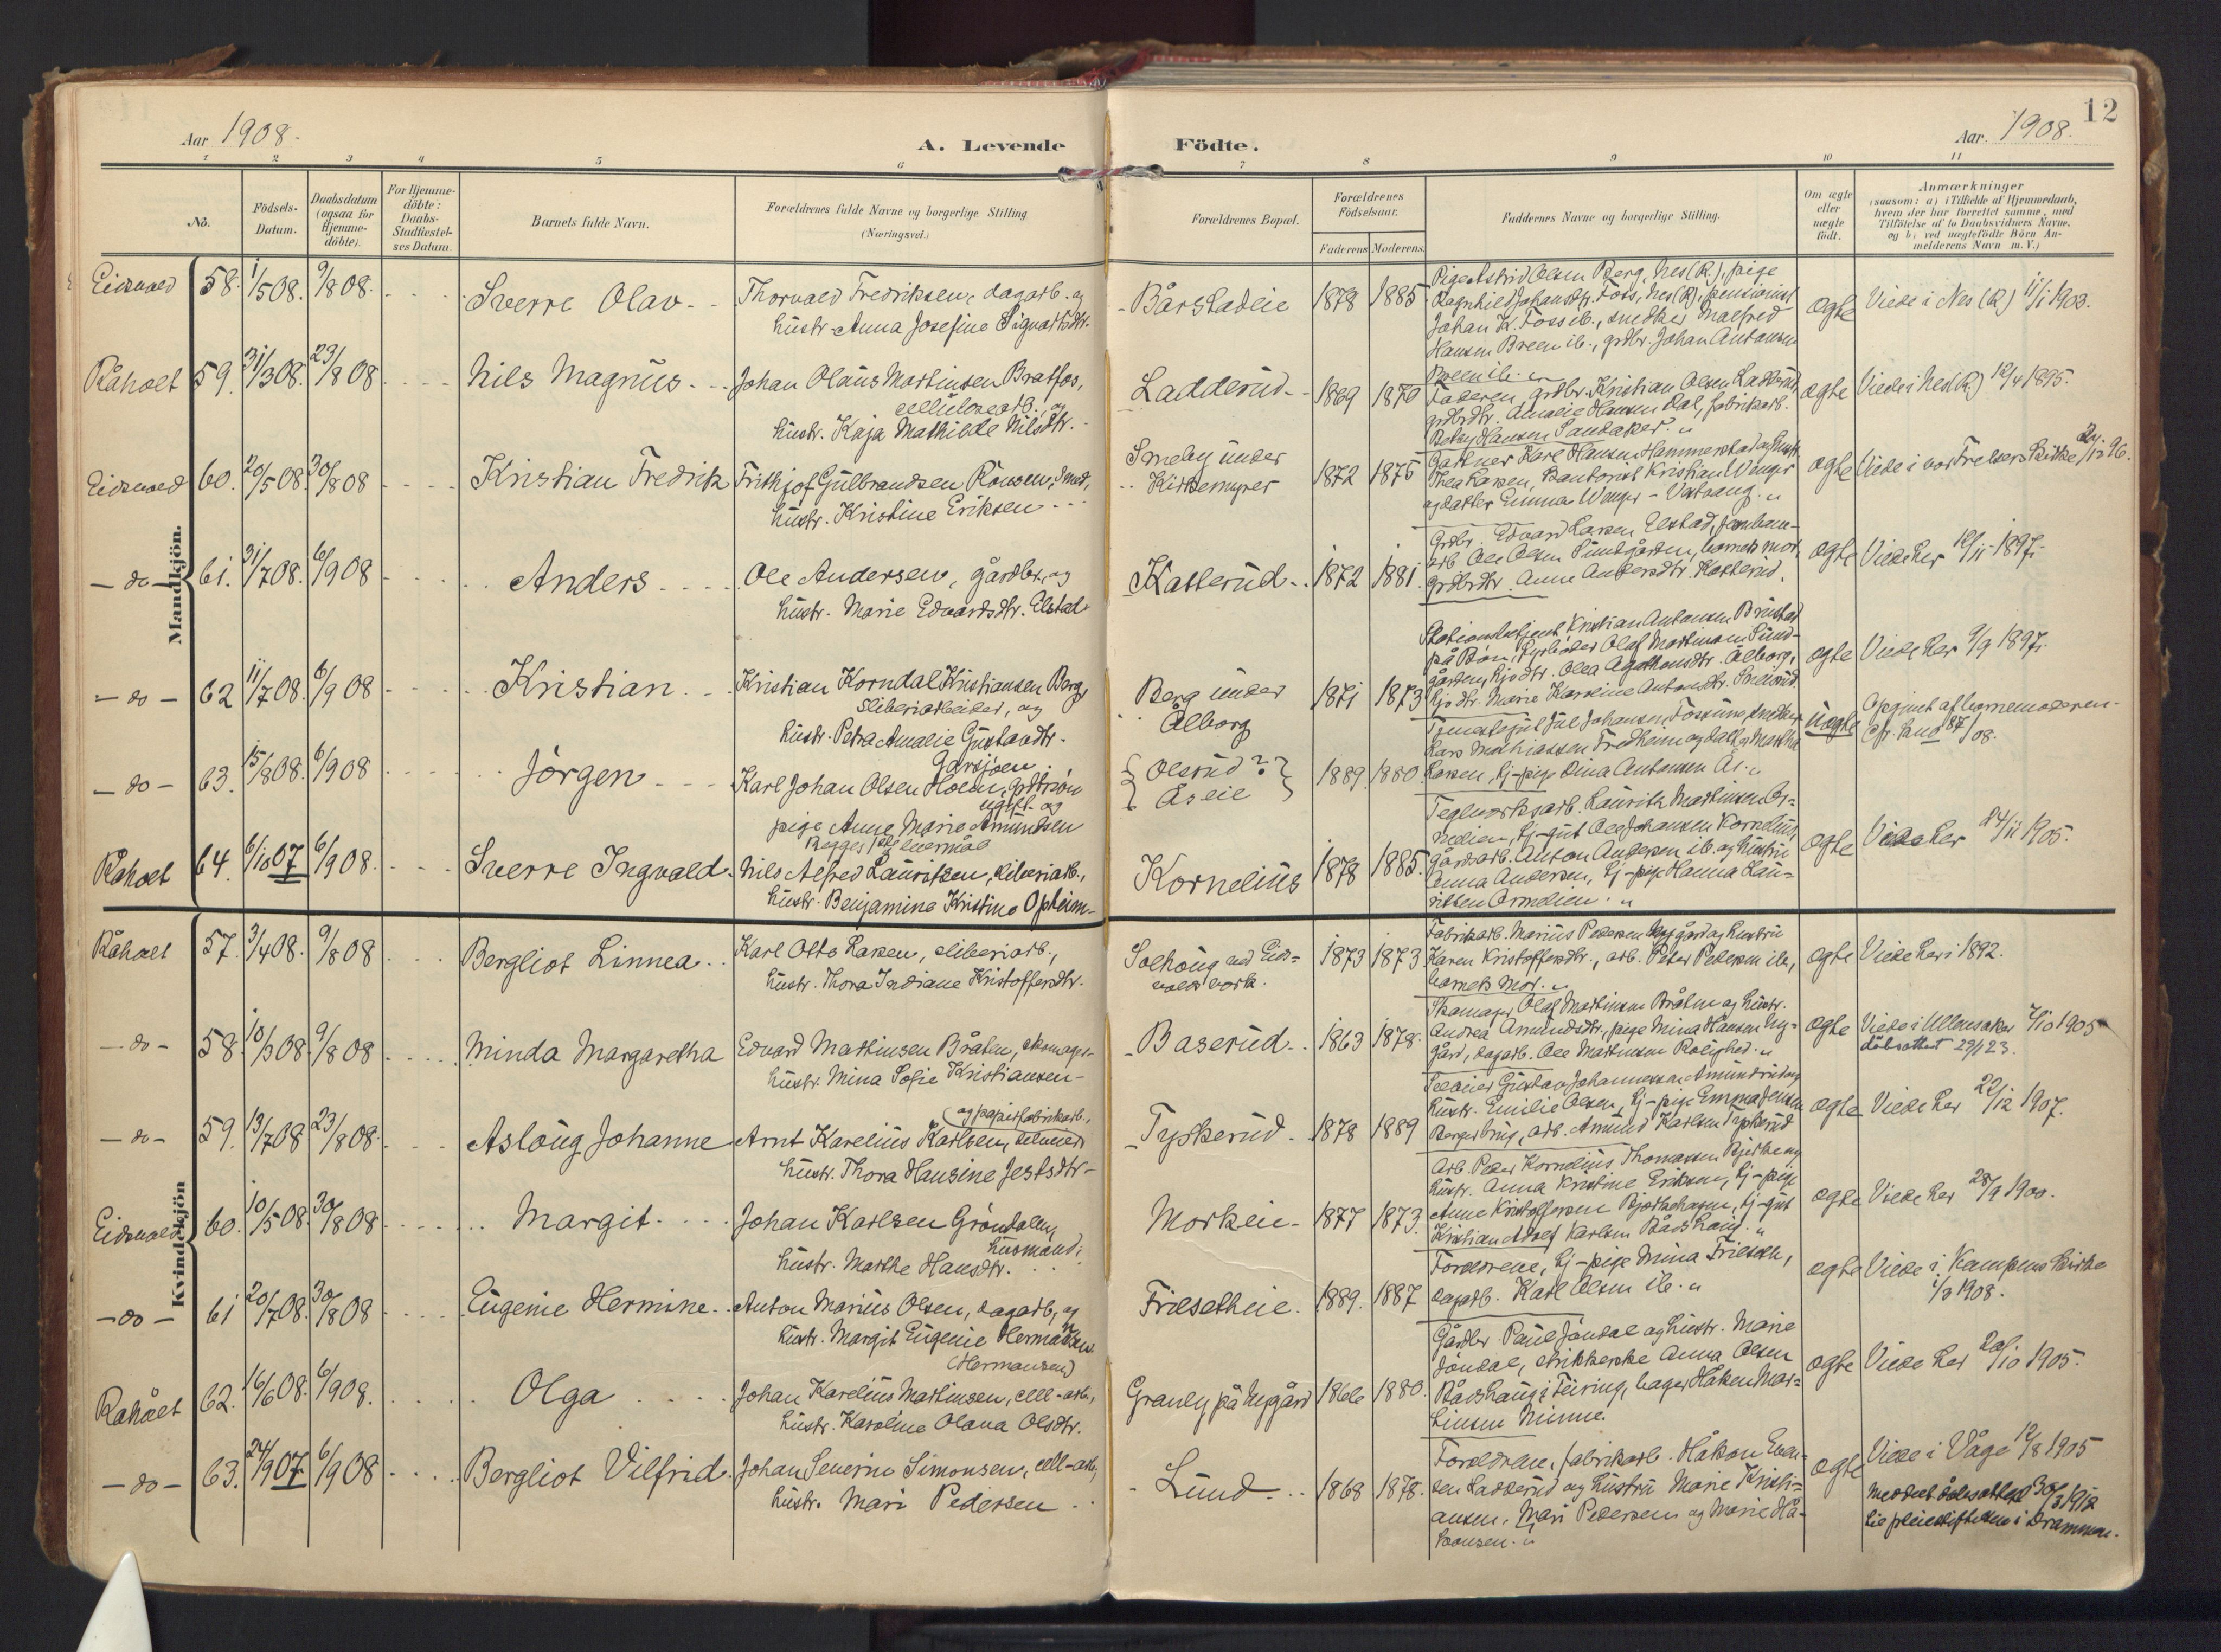 12
Aar 1908.
A. Levende
Födte.
Aar. 1908.
1 2 3 4 5 6 7 8 9 10 11
No.
Födsels-
Datum.
Daabsdatum
(ogsaa for
Hjemme-
döbte).
For Hjemme-
döbte:
Daabs-
Stadfæstel-
ses Datum.
Barnets fulde Navn.
Forældrenes fulde Navne og borgerlige Stilling
(Næringsvei.)
Forældrenes Bopæl.
Forældrenes
Födselsaar.
Faderens Moderens
Faddernes Navne og borgerlige Stilling.
Om ægte
eller
uægte
födt.
Anmærkninger
(saasom: a) i Tilfælde af Hjemmedaab,
hvem der har forrettet samme, med
Tilföielse af to Daabsvidners Navne,
og b) ved uægtefödte Börn An-
melderens Navn m. V.)
Mandkjön.
Eidsvold 58. 1/5 08. 9/8 08. Sverre Olav
Thorvald Fredriksen, dagarb. og
hustr. Anna Josefine Sigvartsdtr.
Bårstadeie 1878 1885
Pige Astrid Olsen Berg, Nes (R.), pige
Ragnhild Johansdtr. Foss, Nes (R), pensionist
Johan K. Foss ib., snedker Malfred
Hansen Breen ib., grdbr. Johan Antonsen
Breen ib.
ægte Viede i Nes (R) 11/1 1903.
Råholt 59. 31/3 08. 23/8 08 Nils Magnus
Johan Olaus Martinsen Bratfos,
cellulosearb., og
hustr. Kaja Mathilde Nilsdtr.
Ladderud 1869 1870
Faderen, grdbr. Kristian Olsen Ladderud,
grdbrdtr. Amalie Hansen Dal, fabrikarb.
Betzy Hansen Sandaker.
ægte Viede i Nes (R.) 12/4 1895.
Eidsvold 60. 20/5 08. 30/8 08 Kristian Fredrik
Frithjof Gulbrandsen Rousen, smed,
hustr. Kristine Eriksen
Smeby under
Kirkemyrer 1872 1875
Gartner Karl Hansen Hammerstad og hustr.
Thea Larsen, Kristian Wenger
og datter Emma Wenger
ægte Viede i vor Frelsers Kirke 96.
do 61. 31/7 08. 6/9 08 Anders
Ole Andersen, gårdbr. og
hustr. Marie Edvardsdtr. Elstad
Kasterud 1872 1881
Grdbr. Edvard Larsen Elstad, jernban-
arb. Ole Olsen Sundgården, barnets mor,
grdbrdtr. Anne Andersdtr. Kasterud.
ægte Viede her 12/11 1897.
do 62 11/7 08. 6/9 08 Kristian
Kristian Korndal Kristiansen Berg
sliberiarbeider, og
hustr. Petra Amalie Gustavdtr.
Berg under
Ålborg 1871 1873
Stationsbetjent Kristian Antonsen Brustad
på Bøn, Olaf Martinsen Sund-
gården, Olea Agathonsdtr. Ålborg,
Marie Karoline Antonsdtr.
ægte Viede her 9/9 1897.
do 63. 15/8 08. 6/9 08 Jörgen
Garsjøen
Karl Johan Olsen Holm,
ugift og
pige Anne Marie Amundsen
Begges 1ste leiermål
{ Olsrud ? }
{ Åseie } 1889 1880
Juul Johansen Fossum, snedker
Lars Mathiassen Fredheim og datter Martha
Larsen, tj-pige Dina Antonsen Ås.
uægte Opgivet af barnemoderen
cfr. 87/08.
Råholt 64. 6/10 07 6/9 08. Sverre Ingvald
Nils Alfred Lauritsen, sliberiarb.,
hustr. Benjamine Kristine Opheim
Kornelius 1878 1885.
Teglverksarb. Lauritz Martinsen Or-
medien, tj-gut Ole Johansen Kornelius,
gårdsarb. Anton Andersen ib. og hustru
Anna Andersen, tj-pige Hanna Lau-
ritsen Ormedien.
ægte Viede her 24/11 1905.
Kvindekjön
Råholt 57. 3/4 08. 9/8 08 Bergliot Linnea
Karl Otto Larsen, sliberiarb.,
hustr. Thora Indiane Kristoffersdtr.
Solhoug ved Eids-
volds verk. 1873 1873
Fabrikarb. Marius Pedersen Nygård og hustru
Karen Kristoffersdtr., arb. Peter Pedersen ib.,
barnets mor.
ægte Viede her i 1892.
do 58. 10/5 08. 9/8 08 Minda Margaretha
Edvard Martinsen Bråten, skomager
hustr. Mina Sofie Kristiansen
Baserud 1863 1878.
Skomager Olaf Martinsen Bråten og hustr.
Andrea Amundsdtr., pige Mina Hansen Ny-
gård, dagarb. Ole Martinsen Rolighed.
ægte Viede i Ullensaker 7/10 1905
dåbsattest 29/1 23.
do 59. 13/7 08 23/8 08. Aslaug Johanne
(og papirfabrikarb.,
Arnt Karelius Karlsen, selveier
hustr. Thora Hansine Jestsdtr
Tyskerud 1878 1889
Selveier Gustav Johannessen Amundrud og
hustr. Emilie Olsen, tj-pige Emma Jensen
arb. Amund Karlsen Tyskerud
ægte Viede her 22/12 1907.
Eidsvold 60. 10/5 08. 30/8 08 Margit
Johan Karlsen Gröndalen,
husmand,
hustr. Marthe Hansdtr.
Morkeie 1877 1873.
Arb. Peder Kornelius Thomassen Bjerke og
hustr. Anna Kristine Eriksen, tj-pige
Anne Kristoffersen Bjerkehagen, tj-gut
Kristian Adolf Karlsen Bårdshaug.
ægte Viede her 28/9 1900.
do 61 20/7 08. 30/8 08 Eugenie Hermine
Anton Marius Olsen, dagarb., og
hustr. Margit Eugenie Hermansen
(Hermansen)
Frilsetheie. 1889. 1887
Forældrene, tj-pige Mina Frilseth,
dagarb. Karl Olsen ib.
ægte Viede i Kampens Kirke
1908.
Råholt 62. 16/6 08. 6/9 08. Olga
Johan Karelius Martinsen, cell-arb.,
hustr. Karoline Olava Olsdtr.
Granly på Nygård 1866 1880.
Gårdbr. Paul Jöndal og hustr. Marie
Jöndal, strikkerske Anna Olsen
Bårdshaug i Feiring, bager Håken Mar-
tinsen Minne.
ægte Viede her 20/10 1905.
do 63. 24/9 07 6/9 08 Bergliot Vilfrid
Johan Severin Simonsen, cell-arb.,
hustr. Mari Pedersen
Lund 1868 1878.
Forældrene, fabrikarb. Håkon Even-
sen Ladderud og hustru Marie Kristi-
ansen, Mari Pedersen og Marie Hå-
konsen.
ægte Viede i Våge 12/8 1905
Meddelt dåbsattest 30/3 1912
til pleiestiftelsen i Drammen.